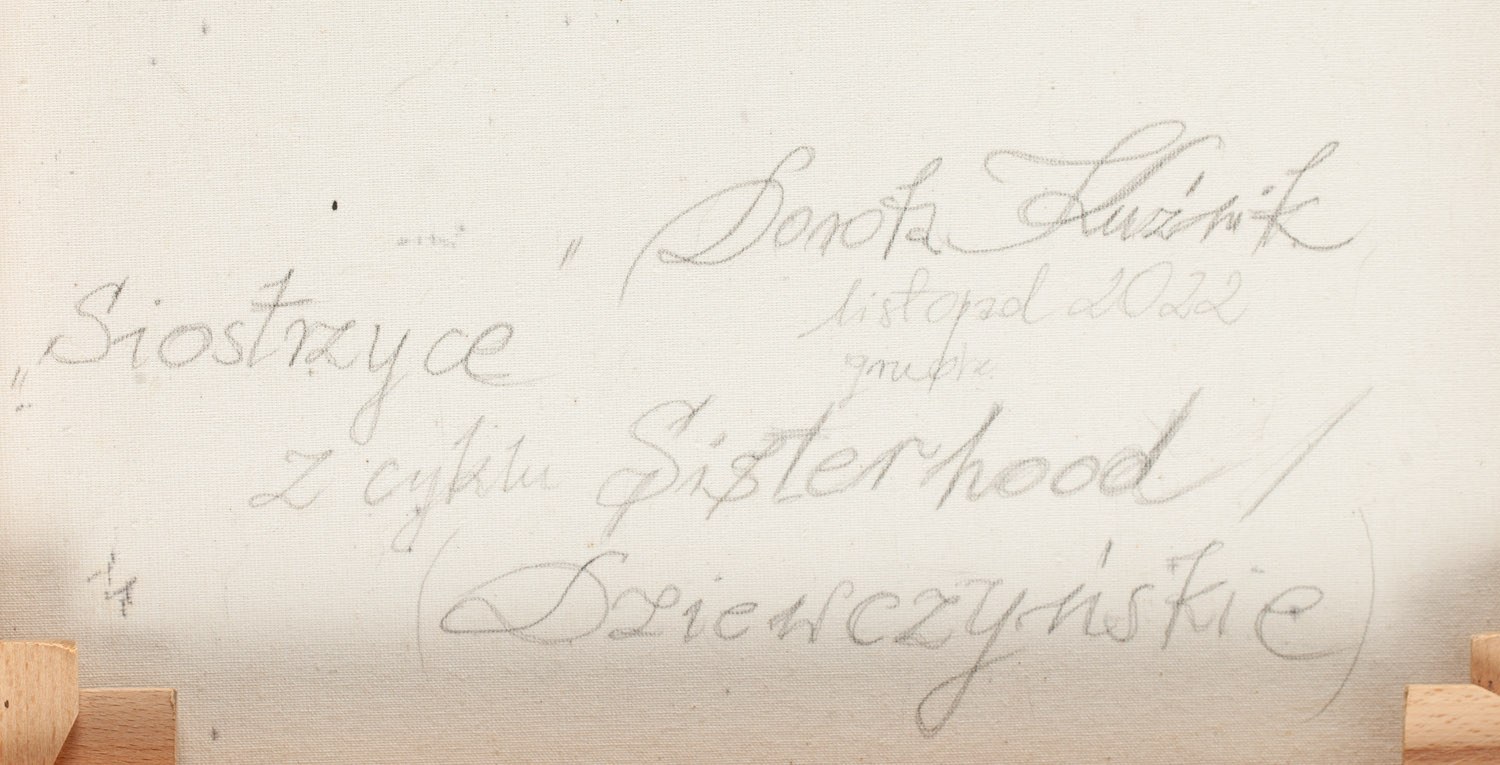 Dorota Kuźnik
listopad 2022
grudz
„Siostrzyce"
z cyklu Sisterhood /
(Dziewczyńskie)